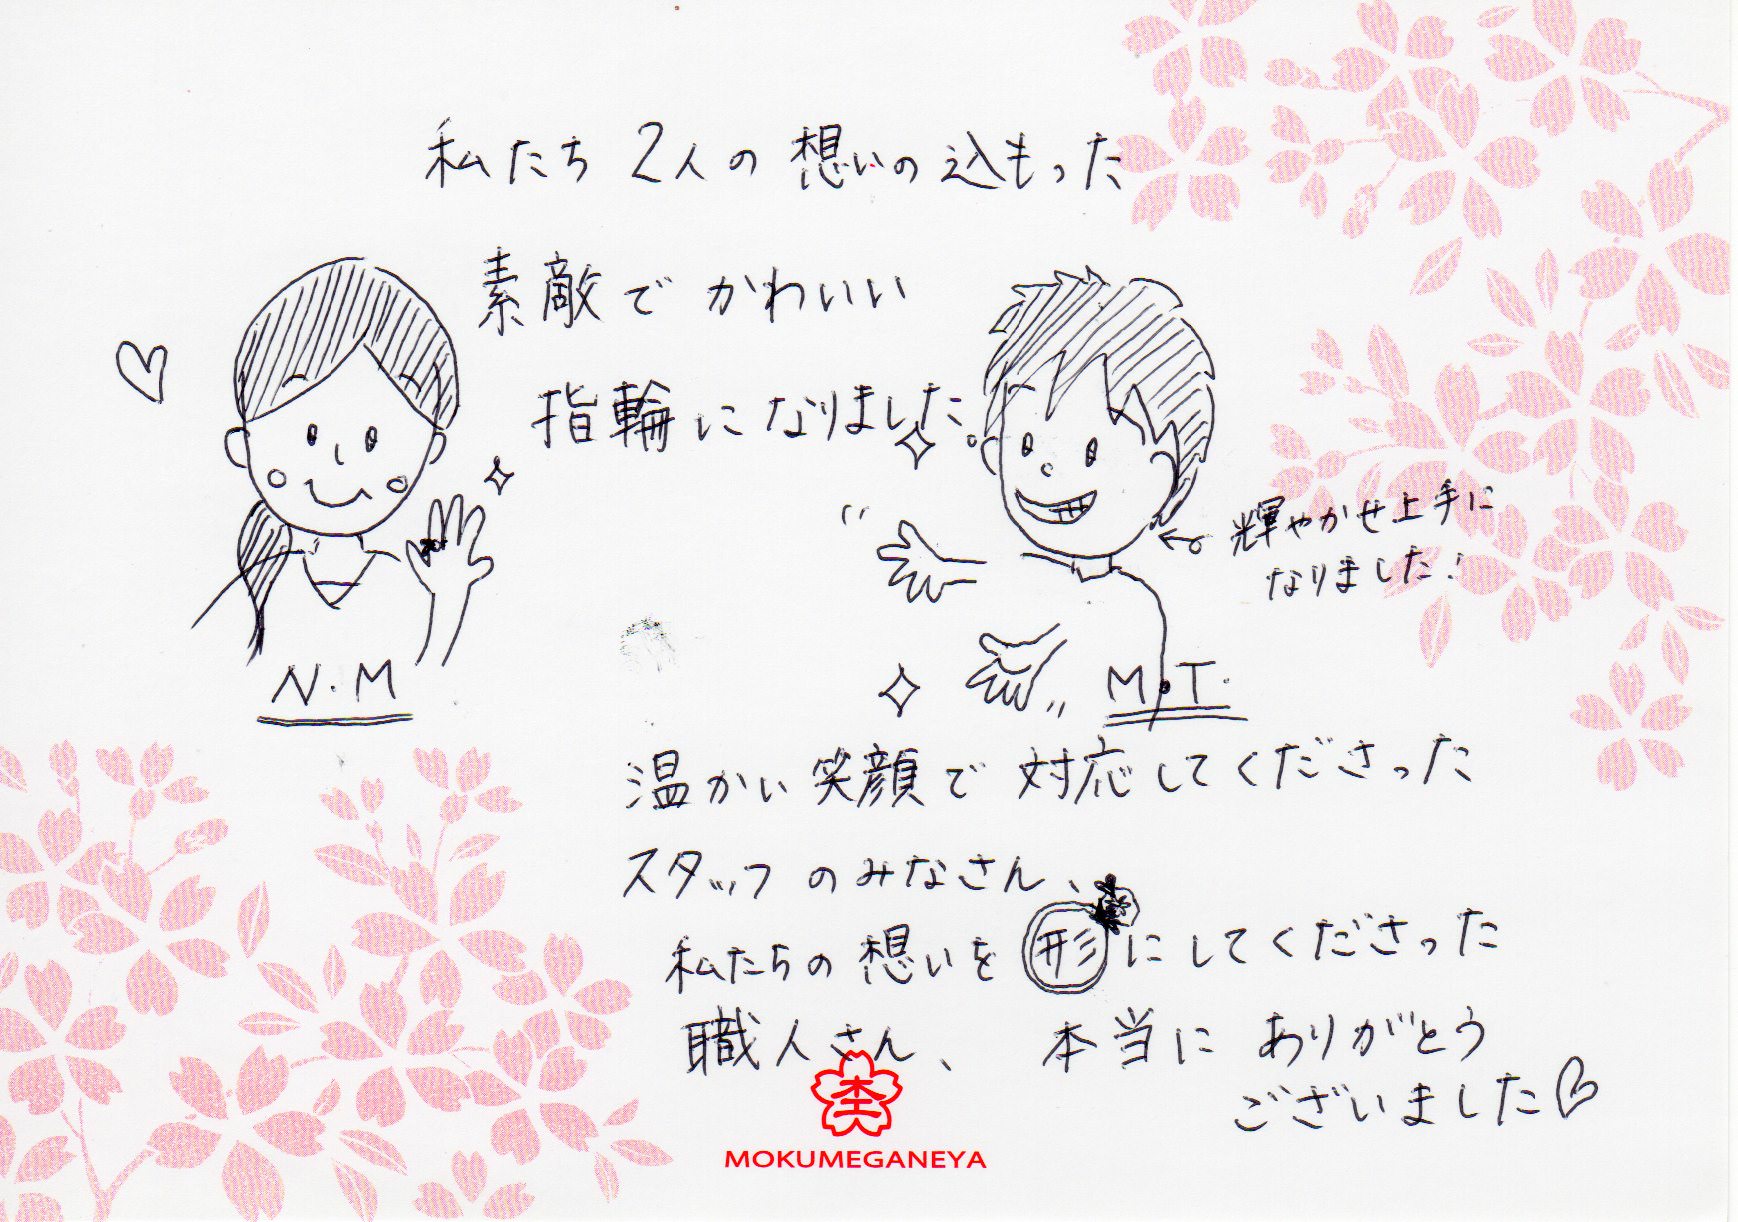 私たち 2人の 想いの込もった
素敵で かわいい
指輪に なりました。
輝やかせ上手に
なりました!
N.M
M.T.
温かい 笑顔で 対応してくださった
スタッフ の みなさん、
私たちの 想いを 形 にしてくださった
職人さん、 本当に ありがとう
ございました
杢
MOKUMEGANEYA